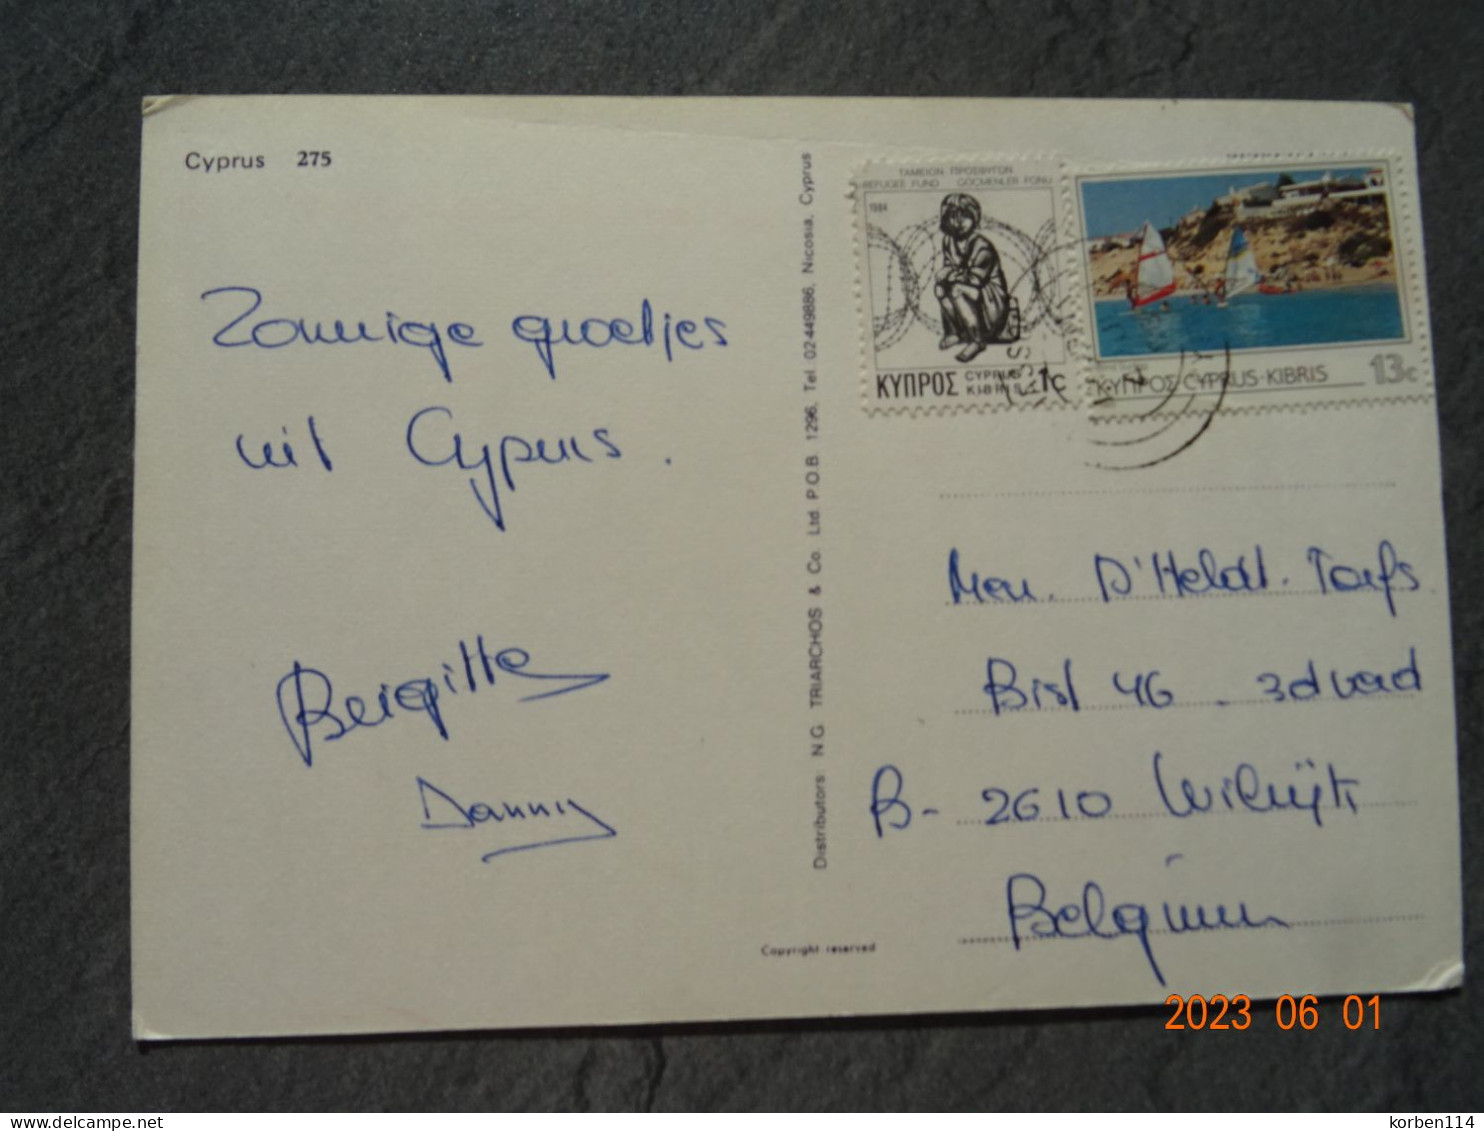 Cyprus 275
Zonnige groetjes
uit Cyprus.
Brigitte
Danny
Distributors: N.G. TRIARCHOS & Co. Ltd. P.O.B. 1296, Tel. 02-449886, Nicosia, Cyprus
Copyright reserved
ΤΑΜΕΙΟΝ ΠΡΟΣΦΥΓΩΝ
REFUGEE FUND GÖÇMENLER FONU
1984
ΚΥΠΡΟΣ CYPRUS KIBRIS 1c
ΚΥΠΡΟΣ-CYPRUS-KIBRIS 13c
D'Heldt. Torfs
Bist 46 - 3d verd
B- 2610 Wilrijk
Belgium
2023 06 01
korben114